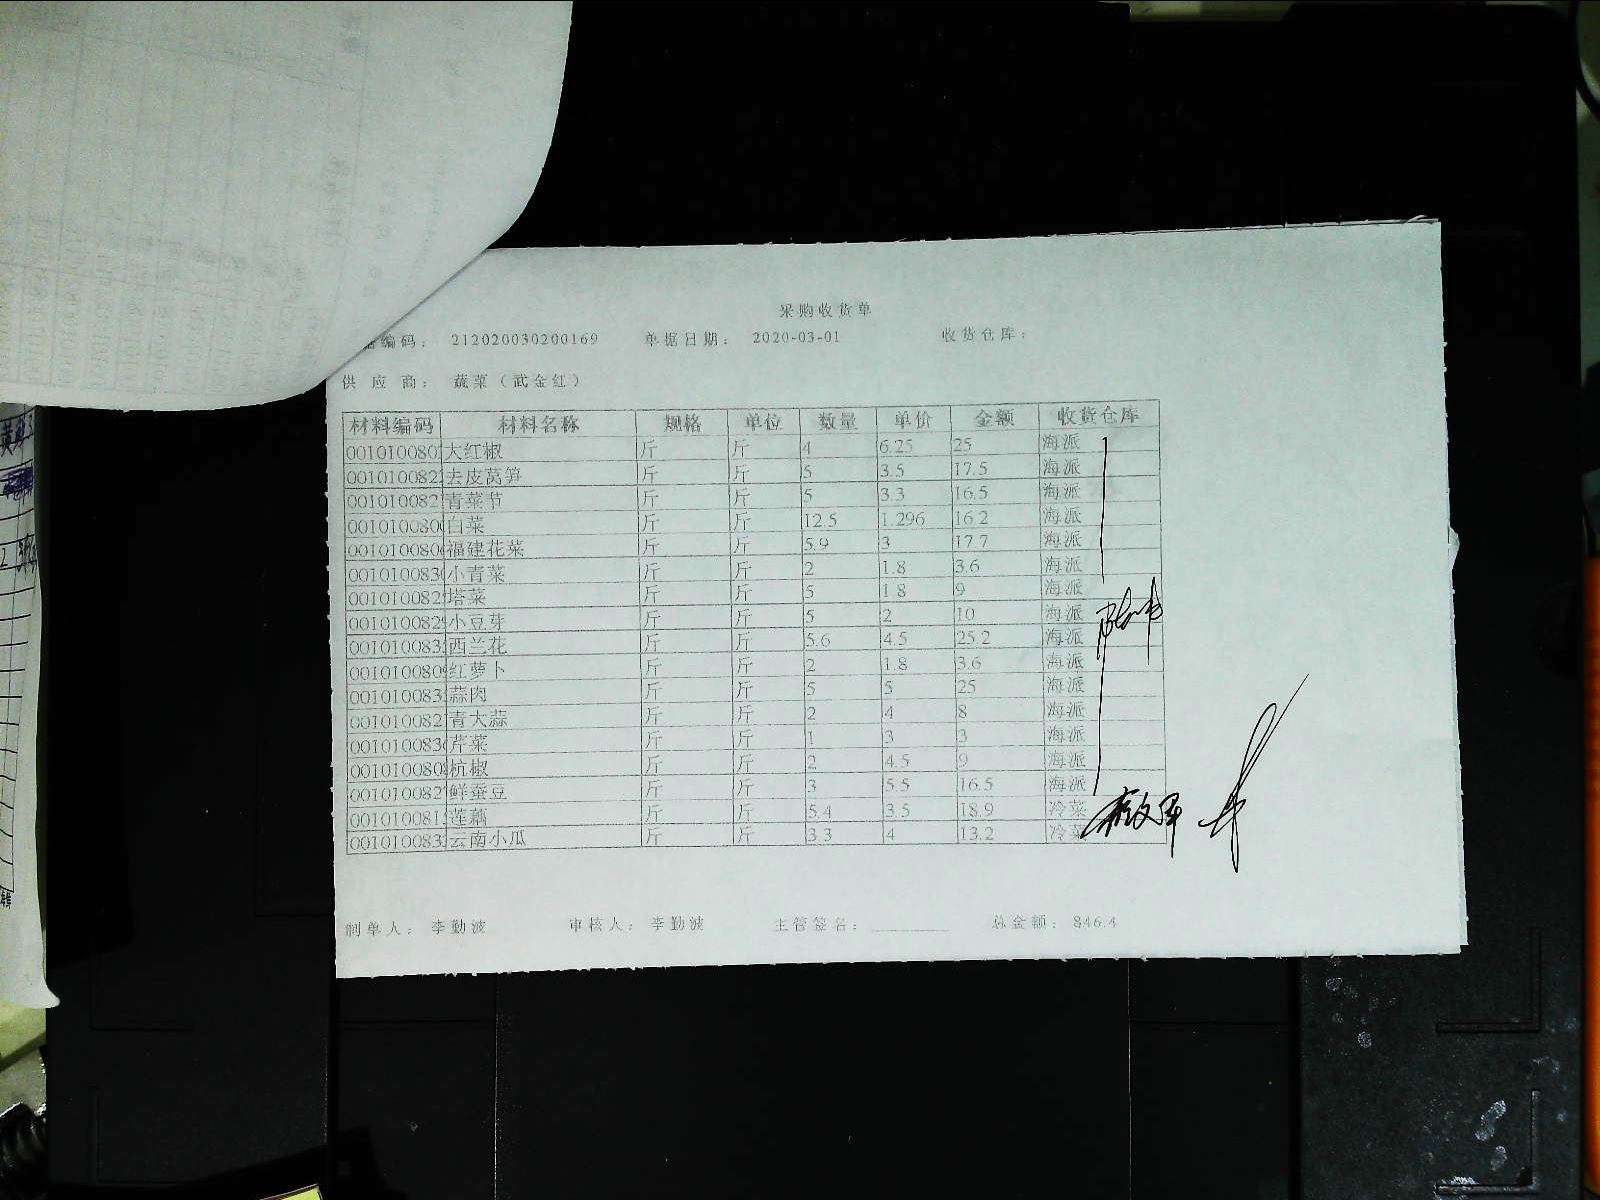 采购收货单
编码： 212020030200169 单据日期： 2020-03-01 收货仓库：
供 应 商： 蔬菜（武金红）
材料编码 材料名称 规格 单位 数量 单价 金额 收货仓库
001010080 大红椒 斤 斤 4 6.25 25 海派
001010082 去皮莴笋 斤 斤 5 3.5 17.5 海派
001010082 青菜节 斤 斤 5 3.3 16.5 海派
001010080 白菜 斤 斤 12.5 1.296 16.2 海派
001010080 福建花菜 斤 斤 5.9 3 17.7 海派
001010083 小青菜 斤 斤 2 1.8 3.6 海派
001010082 塔菜 斤 斤 5 1.8 9 海派
001010082 小豆芽 斤 斤 5 2 10 海派
001010083 西兰花 斤 斤 5.6 4.5 25.2 海派
001010080 红萝卜 斤 斤 2 1.8 3.6 海派
001010083 蒜肉 斤 斤 5 5 25 海派
001010082 青大蒜 斤 斤 2 4 8 海派
001010083 芹菜 斤 斤 1 3 3 海派
001010080 杭椒 斤 斤 2 4.5 9 海派
001010082 鲜蚕豆 斤 斤 3 5.5 16.5 海派
001010081 莲藕 斤 斤 5.4 3.5 18.9 冷菜
001010083 云南小瓜 斤 斤 3.3 4 13.2 冷菜
制单人： 李勤波 审核人： 李勤波 主管签名： 总金额： 846.4